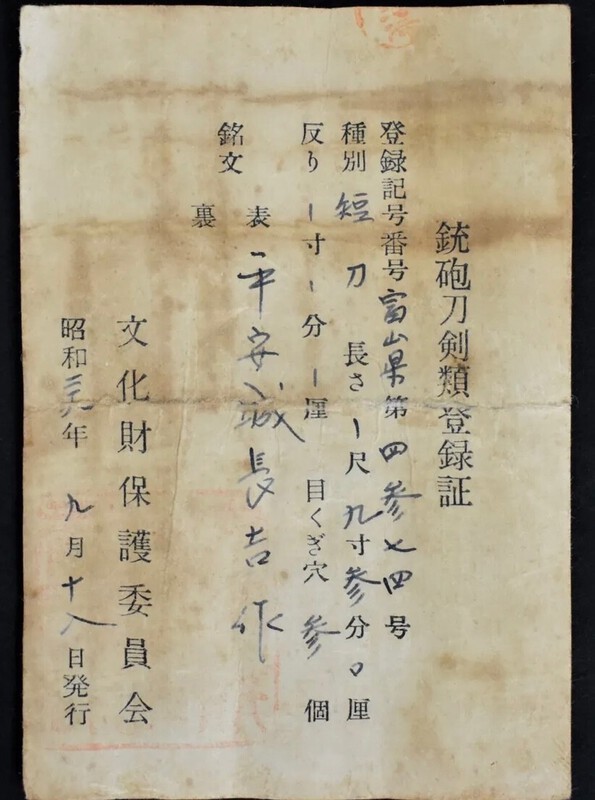 銃砲刀剣類登録証
登録記号番号富山県第四参七四号
種別 短刀 長さ ー尺九寸参分〇厘
反り ー寸ー分ー厘 目くぎ穴 参 個
銘文 表 平安城長吉作
裏
文化財保護委員会
昭和 年 九月十八日発行